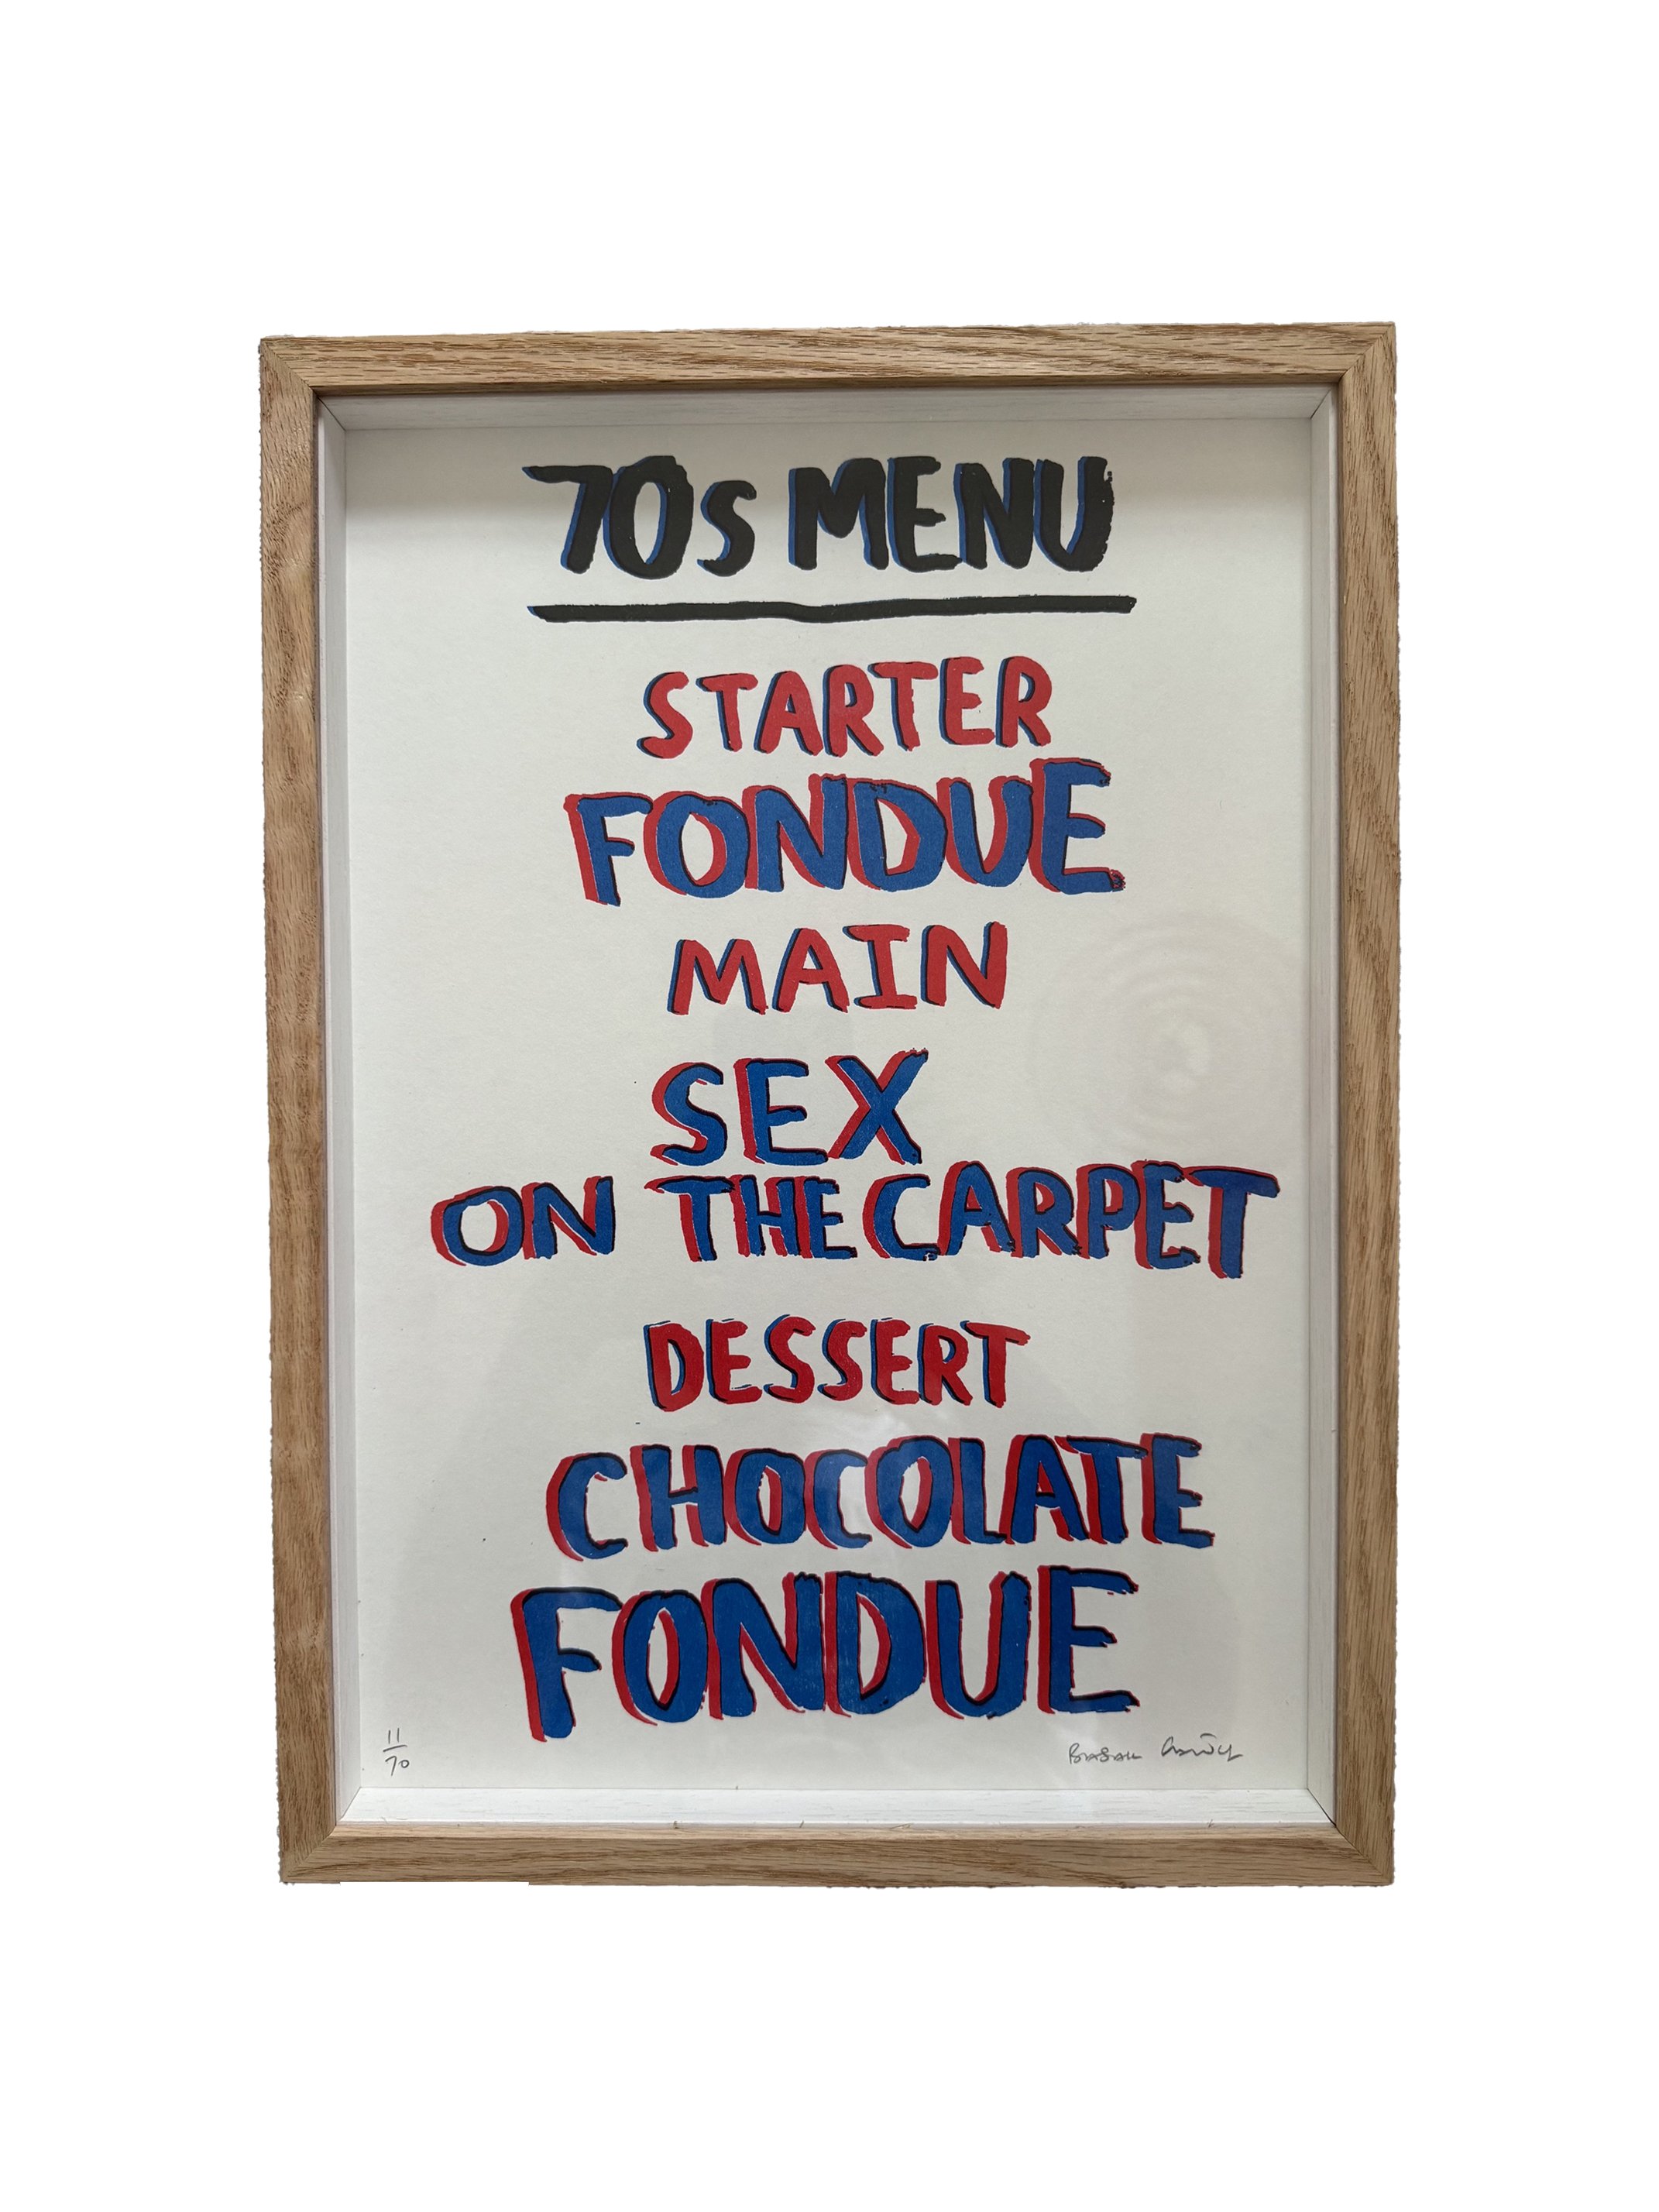 70s MENU
STARTER
FONDUE
MAIN
SEX
ON THE CARPET
DESSERT
CHOCOLATE
FONDUE
11
70